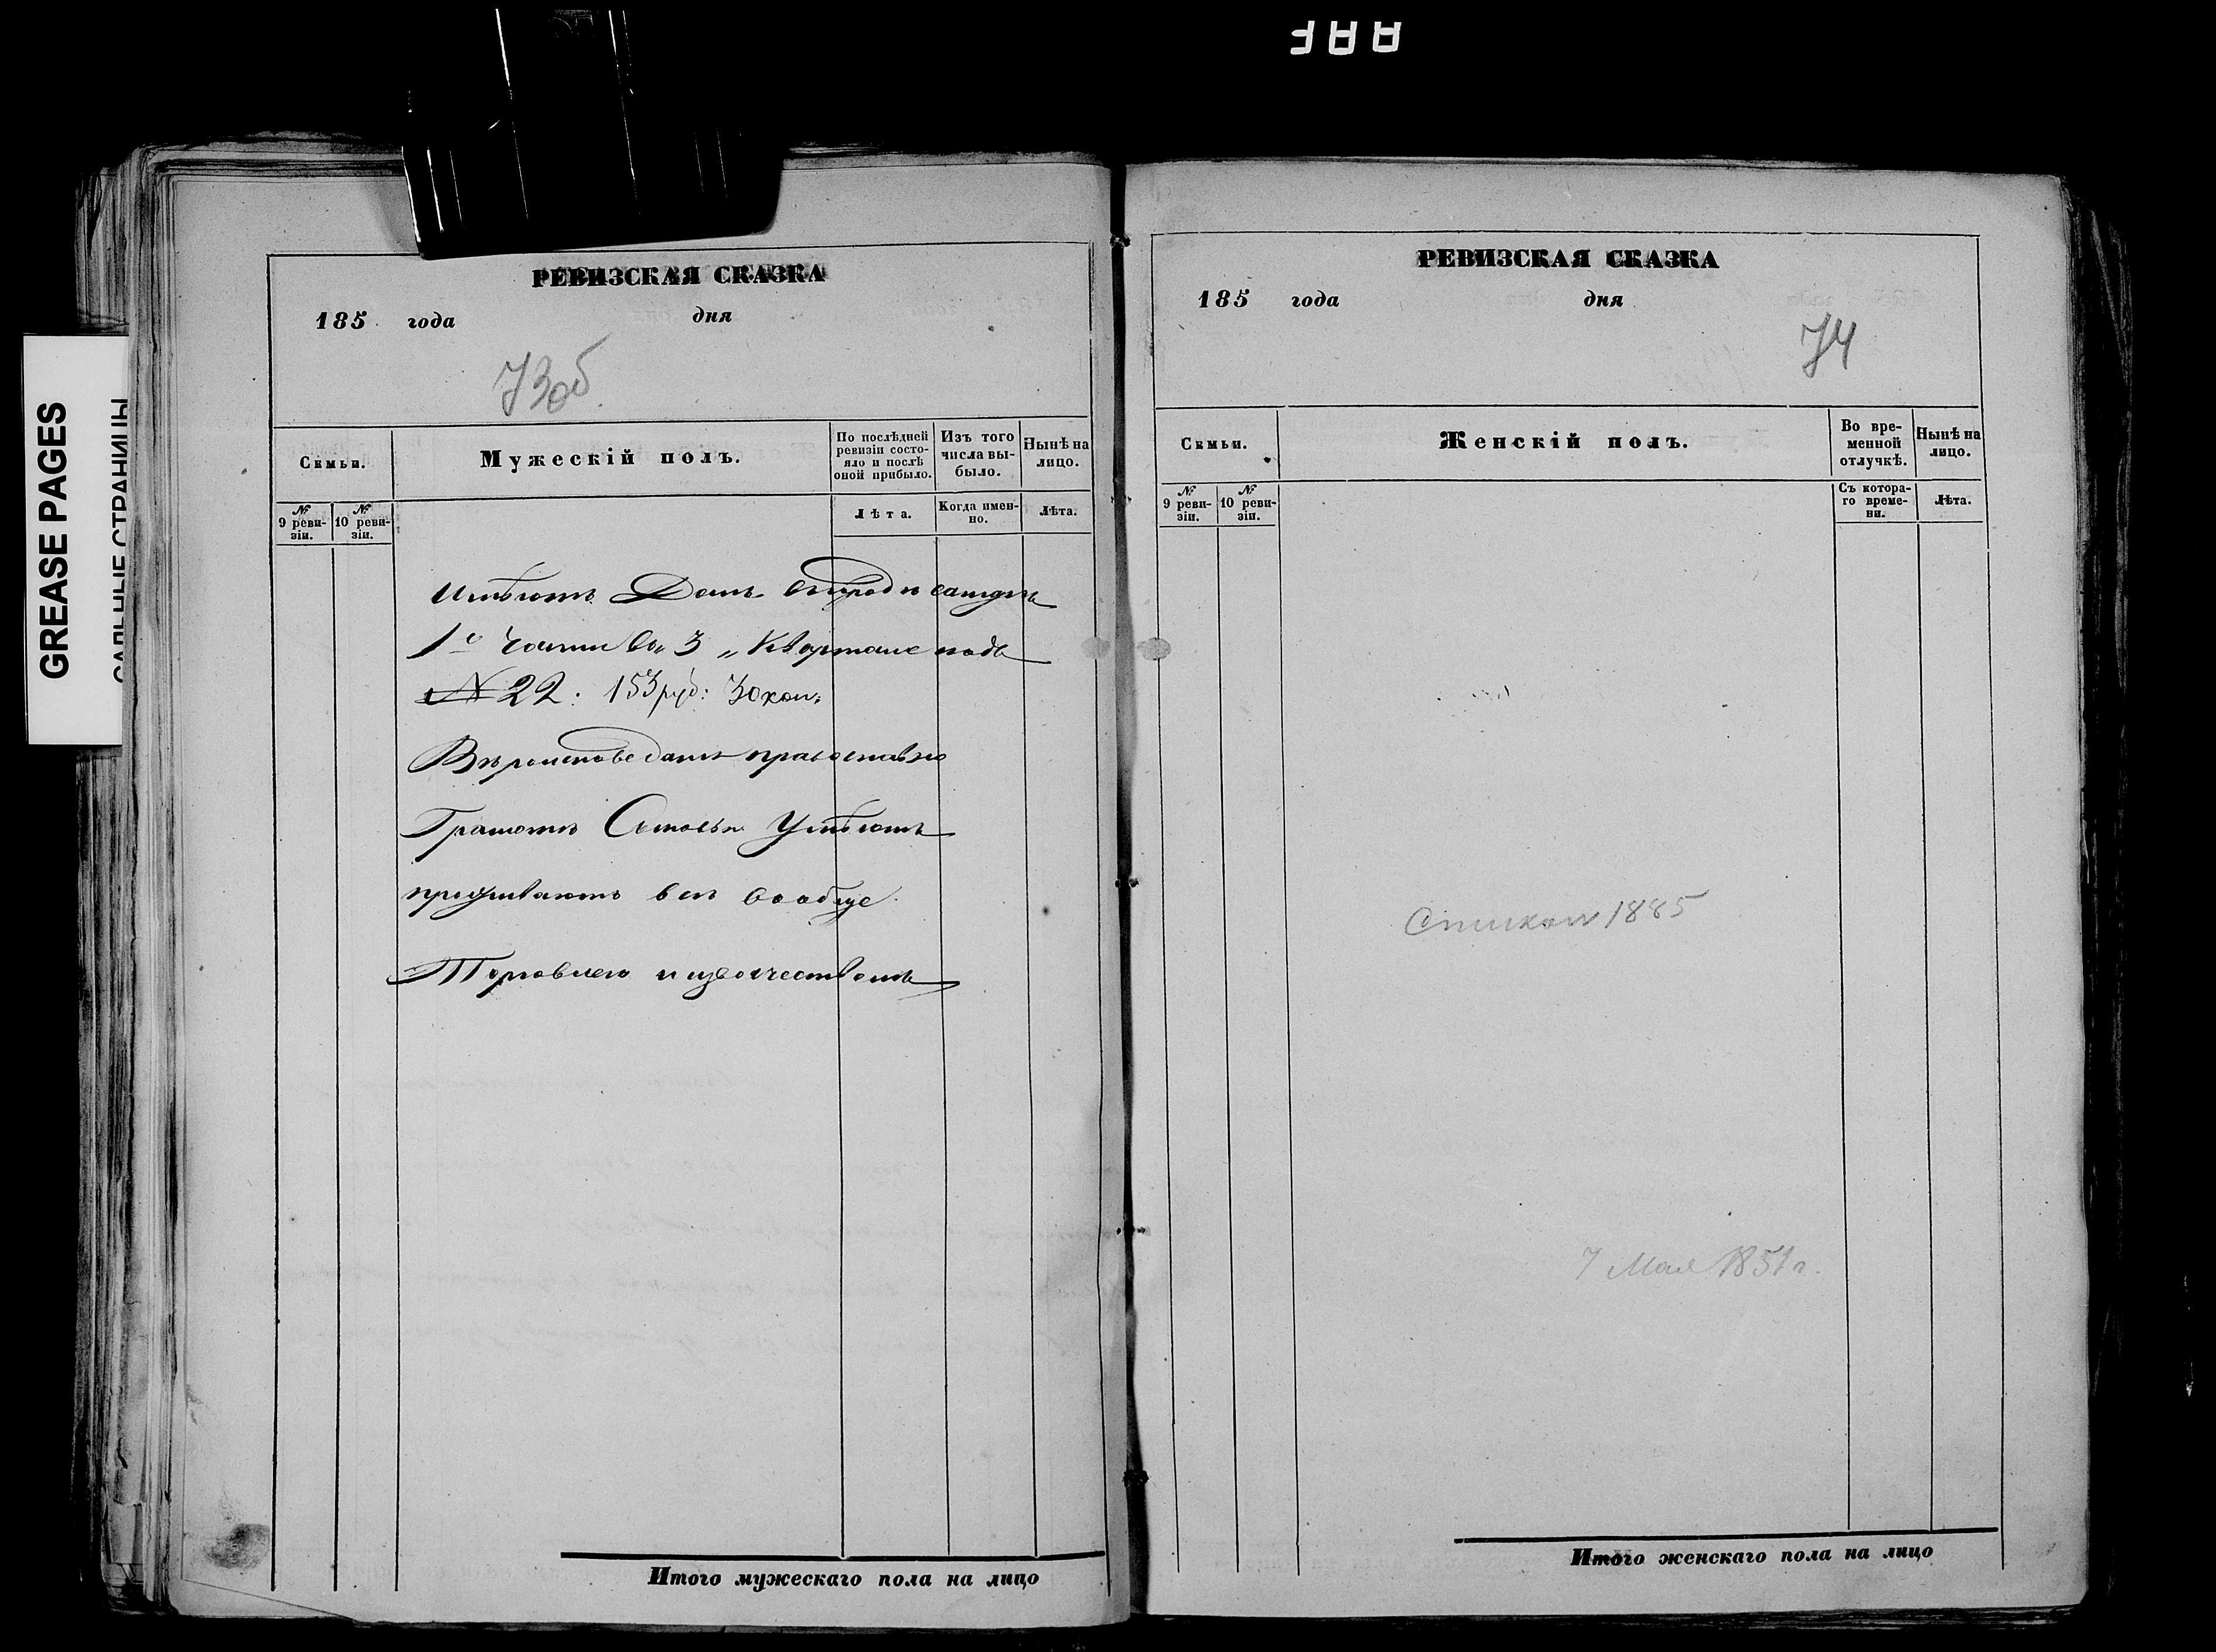 ЯАЯ
GREASE PAGES
САЛЬНЫЕ СТРАНИЦЫ
РЕВИЗСКАЯ СКАЗКА
185 года дня
73об.
Семьи.
Мужескій полъ.
По послѣдней ревизіи состояло и послѣ оной прибыло.
Изъ того числа выбыло.
Нынѣ на лицо.
№ 9 ревизіи.
№ 10 ревизіи.
Лѣта.
Когда именно.
Лѣта.
Имѣютъ Домъ
1й Части во 3 „ Квартале подъ
№ 22. 153 руб: 30 коп:
Вѣроисповеданія православно
Грамотѣ Сыновья Умѣютъ
проживаютъ всѣ вообще
Торговлею и извочествомъ
Итого мужескаго пола на лицо
РЕВИЗСКАЯ СКАЗКА
185 года дня
74
Семьи.
Женскій полъ.
Во временной отлучкѣ.
Нынѣ на лицо.
№ 9 ревизіи.
№ 10 ревизіи.
Съ котораго времени.
Лѣта.
1885
7 Мая 1851 г.
Итого женскаго пола на лицо